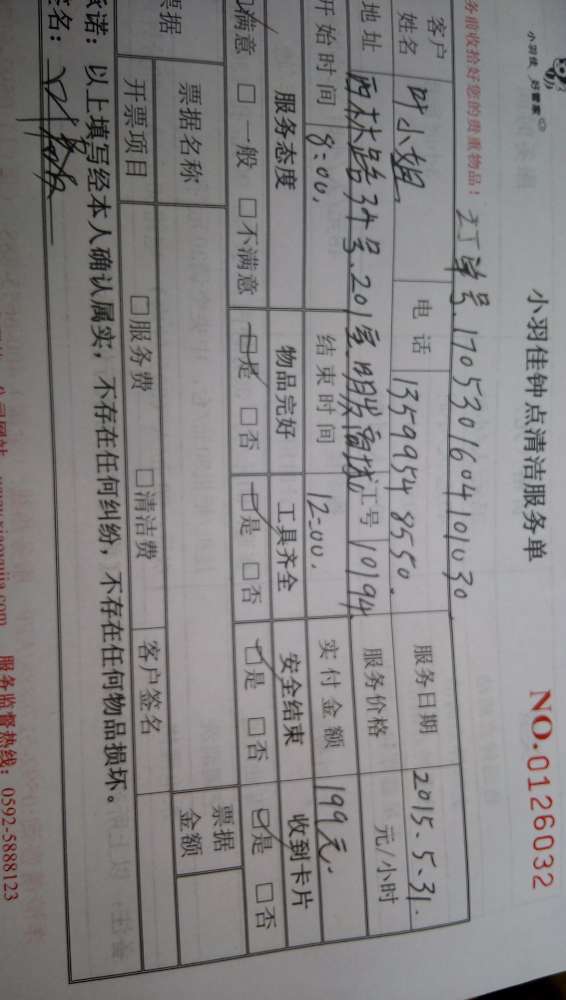 小羽佳 好管家
小羽佳钟点清洁服务单
NO.0126032
务前收拾好您的贵重物品！
订单号.1705301604101030
客户姓名 叶小姐 电话 13599548550. 服务日期 2015.5.31.
地址 西林路34号.201室.明发商城 工号 10194 服务价格 元/小时
开始时间 8:00. 结束时间 12:00. 实付金额 199元.
服务态度 物品完好 工具齐全 安全结束 收到卡片
☑满意 □一般 □不满意 ☑是 □否 ☑是 □否 ☑是 □否 ☑是 □否
票据 票据名称 票据金额
开票项目 □服务费 □清洁费 客户签名
承诺：以上填写经本人确认属实，不存在任何纠纷，不存在任何物品损坏。
签名：
公司网站：www.xiaoyujia.com 服务监督热线：0592-5888123